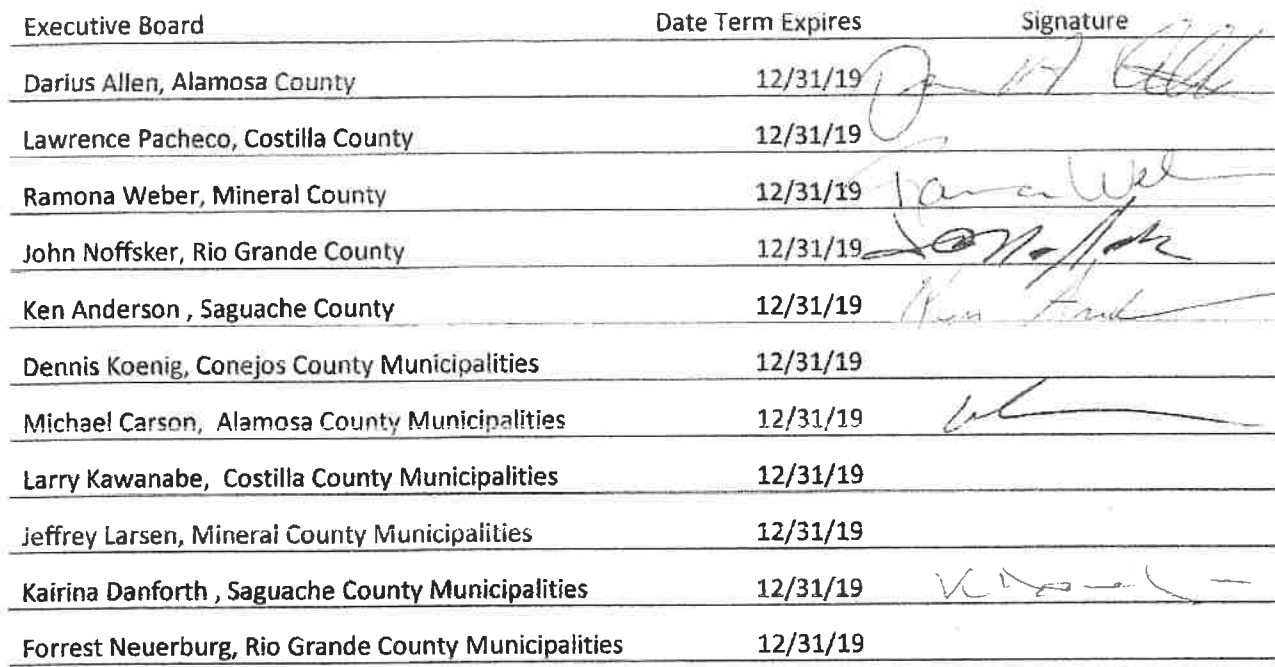 Executive Board Date Term Expires Signature
Darius Allen, Alamosa County 12/31/19
Lawrence Pacheco, Costilla County 12/31/19
Ramona Weber, Mineral County 12/31/19
John Noffsker, Rio Grande County 12/31/19
Ken Anderson , Saguache County 12/31/19 Ken
Dennis Koenig, Conejos County Municipalities 12/31/19
Michael Carson, Alamosa County Municipalities 12/31/19
Larry Kawanabe, Costilla County Municipalities 12/31/19
Jeffrey Larsen, Mineral County Municipalities 12/31/19
Kairina Danforth , Saguache County Municipalities 12/31/19
Forrest Neuerburg, Rio Grande County Municipalities 12/31/19